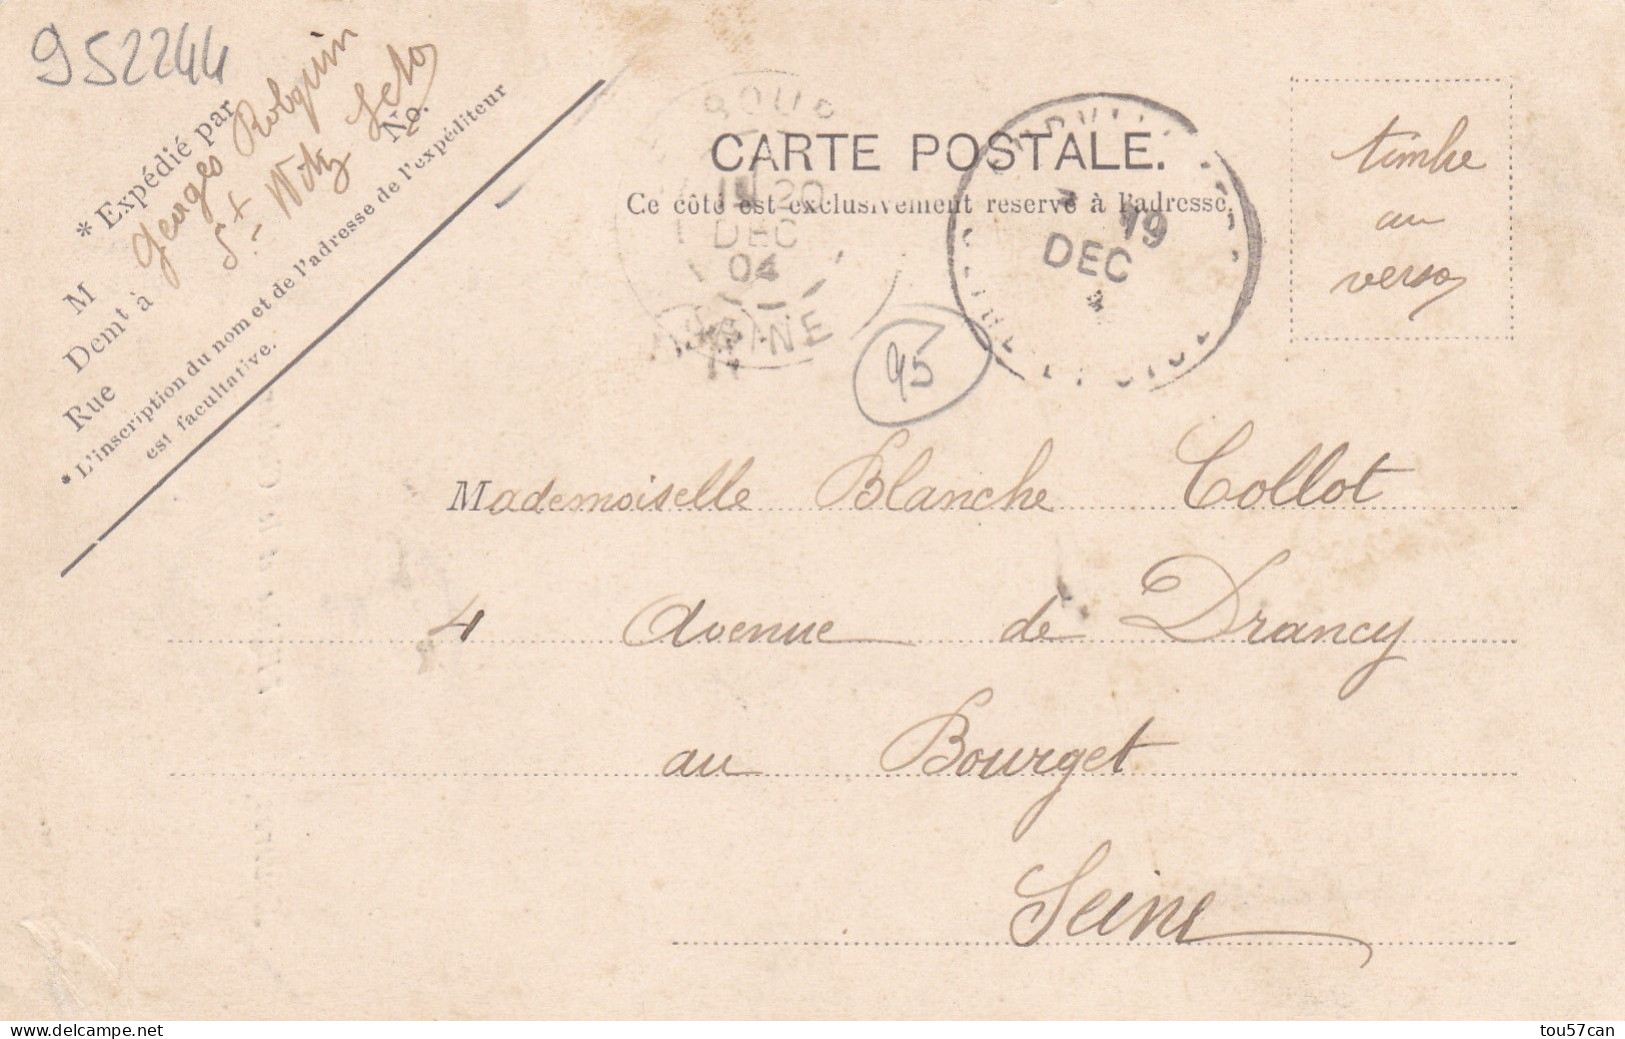 952244
* Expédié par
M Georges Robquin
Demt à St Witz
Rue No.
* L'inscription du nom et de l'adresse de l'expéditeur
est facultative.
CARTE POSTALE.
Ce côté est exclusivement réservé à l'adresse.
20
DEC
04
SEINE
19
DEC
95
timbre
au
verso
Mademoiselle Blanche Collot
4 Avenue de Drancy
au Bourget
Seine
delcampe.net
tou57can